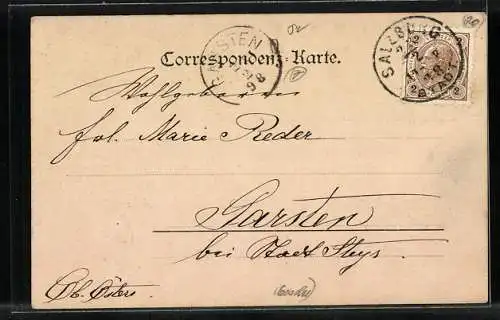 GARSTEN
98
SALZBURG
STADT
2 2
Correspondenz-Karte.
Wohlgeboren
frl. Marie Reder
Garsten
bei Stadt Steyr
Ob. Österr.